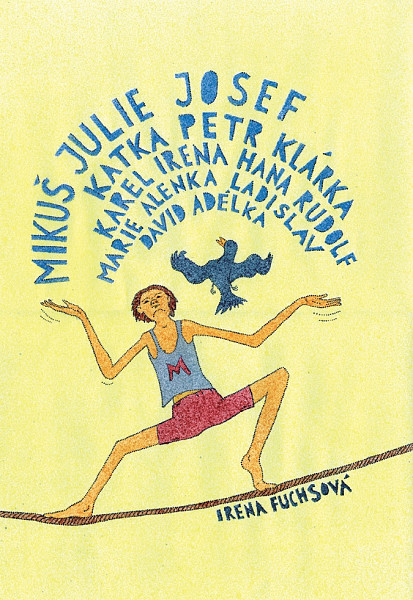 MIKUŠ JULIE JOSEF
KATKA PETR KLÁRKA
KAREL IRENA HANA RUDOLF
MARIE ALENKA LADISLAV
DAVID ADÉLKA
M
IRENA FUCHSOVÁ